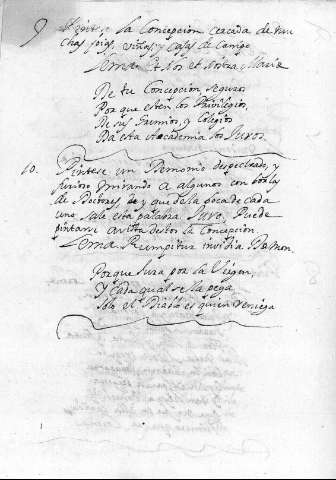 9 Pintese la Concepcion cercada de mu
chas joias, viñas, y casas de Campo
Lema
De tu Concepcion seguros
Porque esten los Privilegios
De sus Gremios, y Colegios
Da esta Academia los Juros.
10. Pintese un Demonio despechado, y
furioso mirando a algunos con borlas
de Doctores, y que de la boca de cada
uno sale esta palabra Juro. Puede
pintarse arriba destos la Concepcion.
Lema Rumpitur invidia Dæmon.
Porque Jura por la Virgen,
Y cada qual se la pega
Solo el Diablo es quien reniega